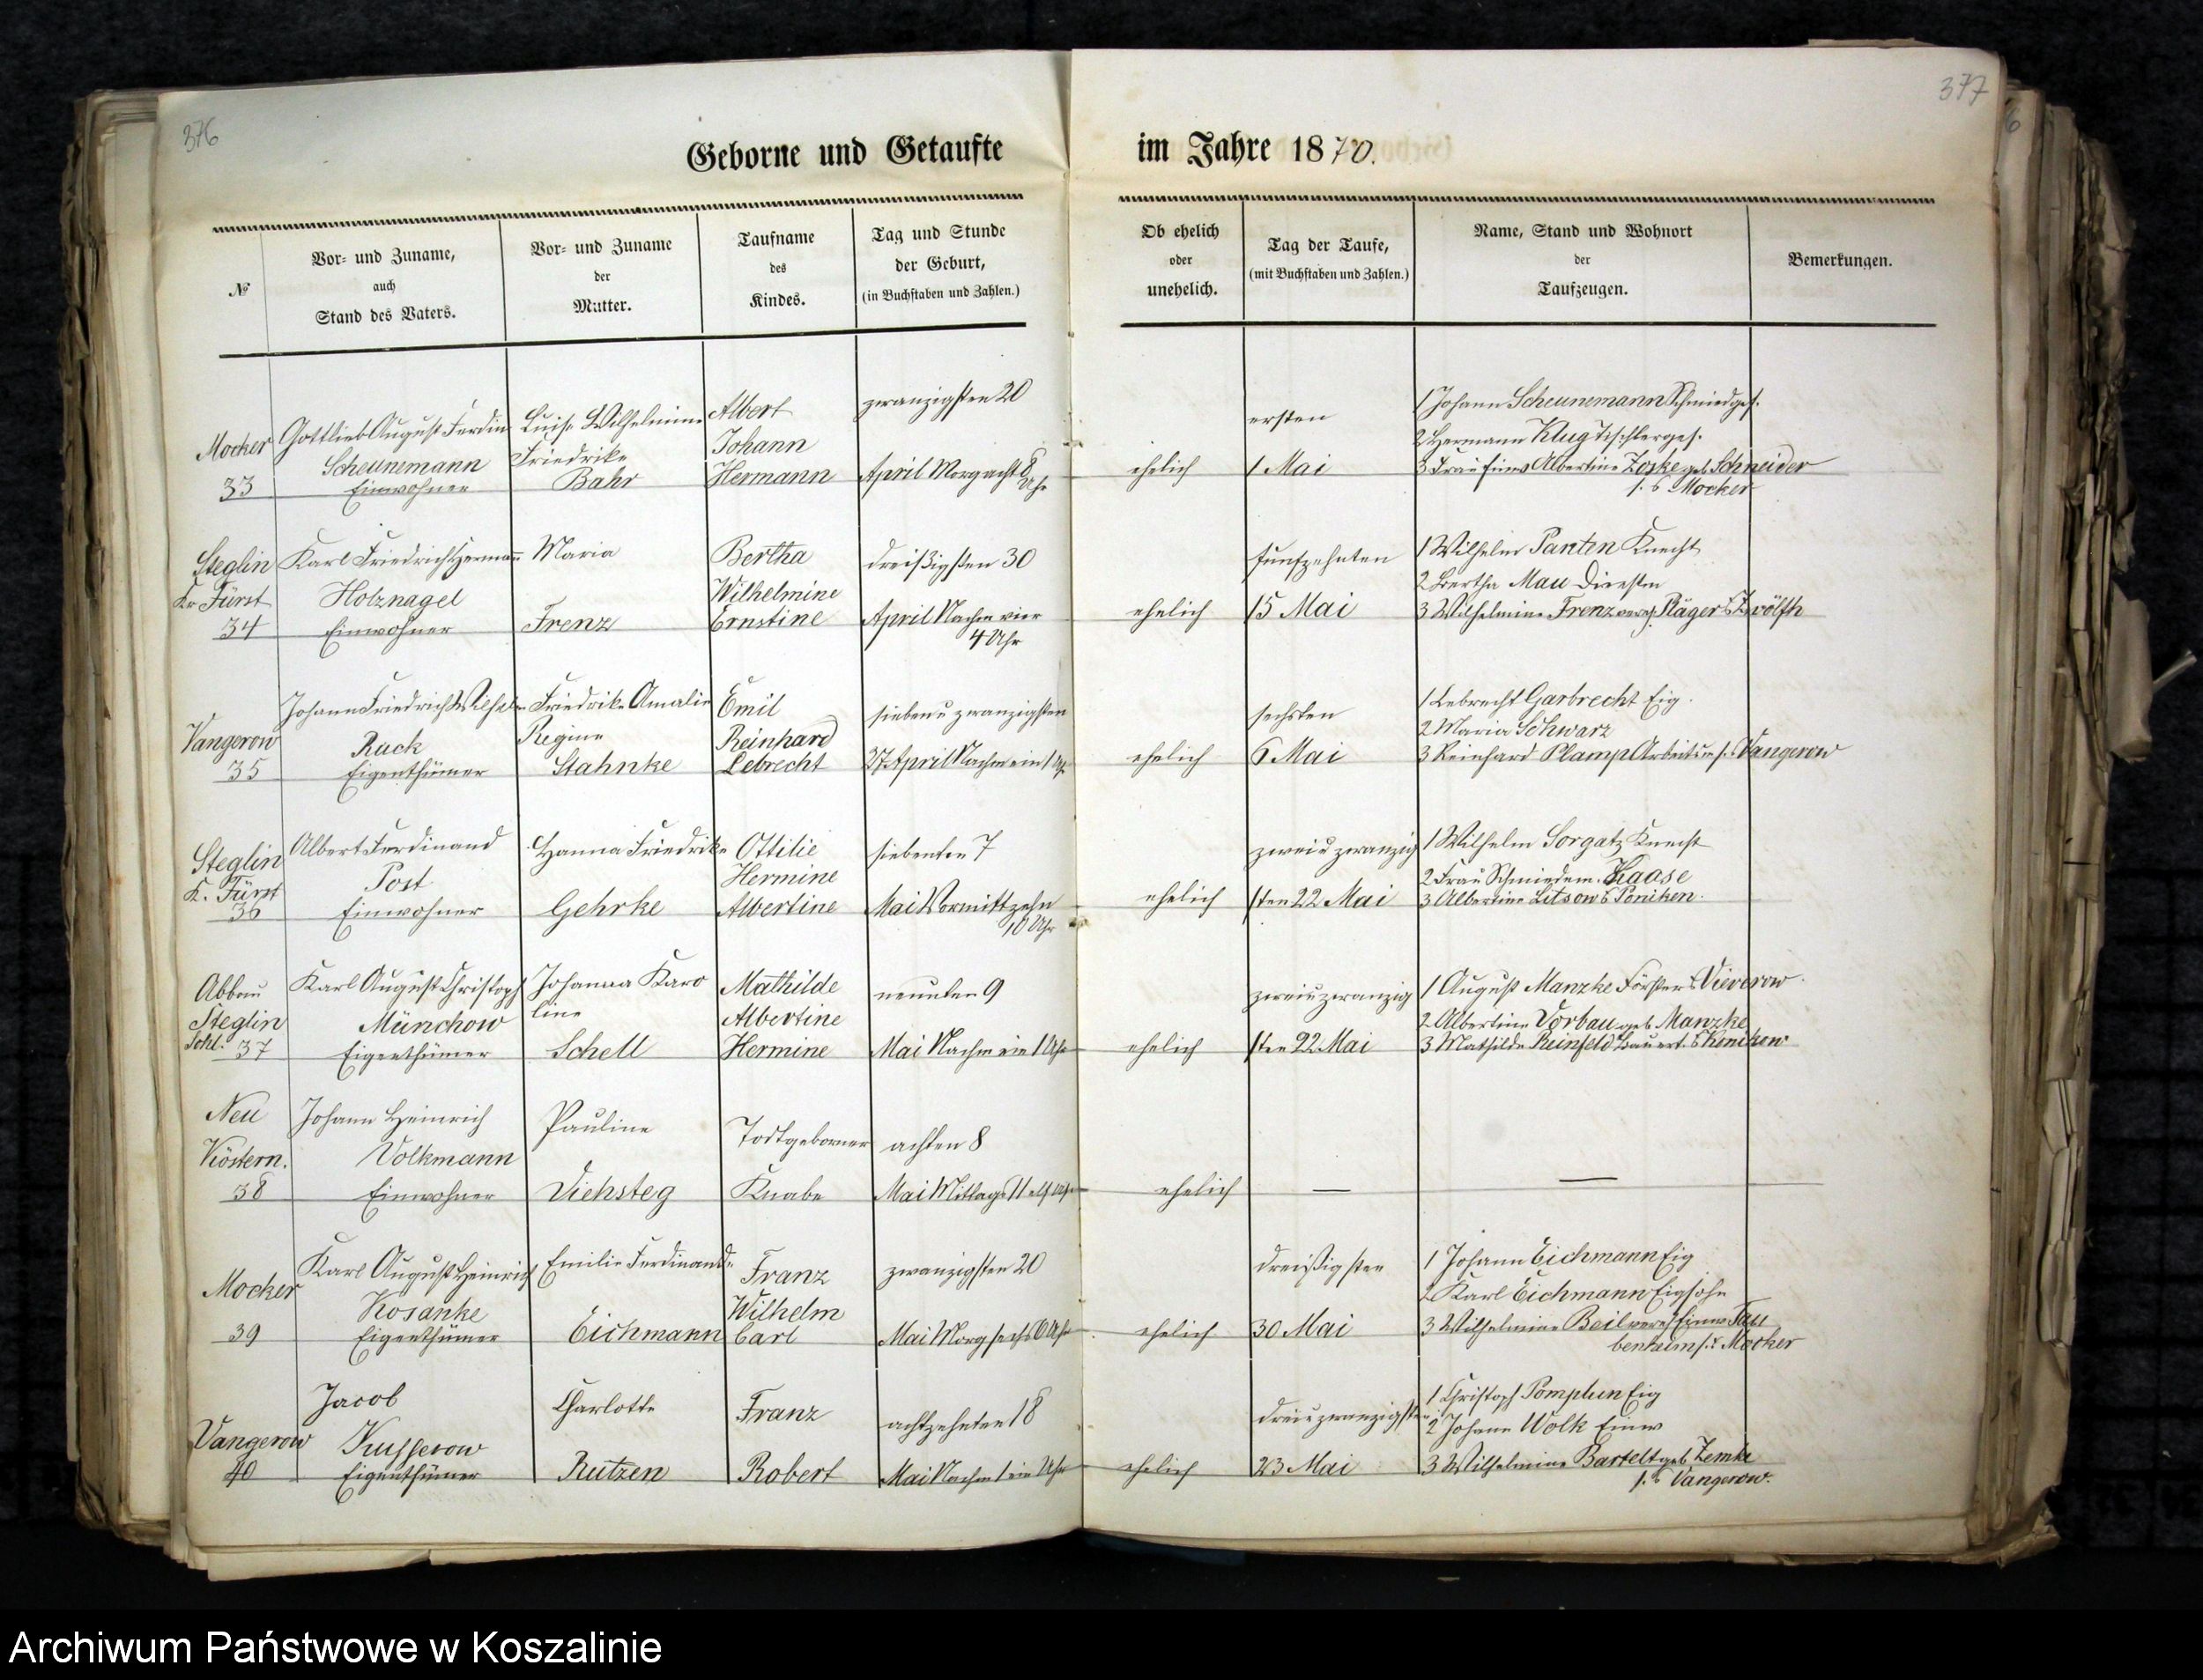 376
377
Geborne und Getaufte
im Jahre 1870.
№
Vor- und Zuname,
auch
Stand des Vaters.
Vor- und Zuname
der
Mutter.
Taufname
des
Kindes.
Tag und Stunde
der Geburt,
(in Buchstaben und Zahlen.)
Ob ehelich
oder
unehelich.
Tag der Taufe,
(mit Buchstaben und Zahlen.)
Name, Stand und Wohnort
der
Taufzeugen.
Bemerkungen.
Mocker
33
Gottlieb August Ferdin
Scheunemann
Einwohner
Luise Wilhelmine
Friedrike
Bahr
Albert
Johann
Hermann
zwanzigsten 20
April Morg acht 8
Uhr
ehelich
ersten
1 Mai
1 Johann Scheunemann Schmiedges.
2 Hermann Klug Tischlerges.
3 Frau Einw Albertine Zoske geb Schneider
Mocker
Steglin
Kr Fürst
34
Karl Friedrich Hermann
Holznagel
Einwohner
Maria
Frenz
Bertha
Wilhelmine
Ernstine
dreißigsten 30
April Nachm vier
4 Uhr
ehelich
funfzehnten
15 Mai
1 Wilhelm Pantzn Knecht
2 Bertha Mau Dienstm
3 Wilhelmine Frenz Pläger
Vangerow
35
Johann Friedrich Wilhelm
Ruck
Eigenthümer
Friedrike Amalie
Regine
Stahnke
Emil
Reinhard
Lebrecht
sieben u zwanzigsten
27 April Nachm ein 1 Uhr
ehelich
sechsten
6 Mai
1 Lebrecht Garbrecht Eig.
2 Maria Schwarz
3 Reinhard Plamp Vangerow
Steglin
K. Fürst
36
Albert Ferdinand
Post
Einwohner
Hanna Friedrike
Gehrke
Ottilie
Hermine
Albertine
siebenten 7
Mai Vormitt zehn
10 Uhr
ehelich
zwei u zwanzig
sten 22 Mai
1 Wilhelm Sorgatz Knecht
2 Frau Schmiedem. Haase
3 Albertine Litzow Poniken.
Abbau
Steglin
Schl. 37
Karl August Christoph
Münchow
Eigenthümer
Johanna Karo
line
Schell
Mathilde
Albertine
Hermine
neunten 9
Mai Nachm ein 1 Uhr
ehelich
zwei u zwanzig
sten 22 Mai
1 August Manzke Förster Vieverow
2 Albertine Vorbau geb Manzke
3 Mathilde Reinfeld Konikow
Neu
Köstern.
38
Johann Heinrich
Volkmann
Einwohner
Pauline
Viehsteg
Todtgeborner
Knabe
achten 8
Mai Mittags 11 elf Uhr
ehelich
—
—
Mocker
39
Karl August Heinrich
Kosanke
Eigenthümer
Emilie Ferdinande
Eichmann
Franz
Wilhelm
Carl
zwanzigsten 20
Mai Morg sechs 6 Uhr
ehelich
dreißigsten
30 Mai
1 Johann Eichmann Eig
2 Karl Eichmann Eigsohn
3 Wilhelmine Beil Einw Tau
benheim Mocker
Vangerow
40
Jacob
Kusserow
Eigenthümer
Charlotte
Rutzen
Franz
Robert
achtzehnten 18
Mai Nachm 1 ein Uhr
ehelich
drei u zwanzigsten
23 Mai
1 Christoph Pomplun Eig
2 Johann Wolk Einw
3 Wilhelmine Bartelt geb Zemke
Vangerow.
Archiwum Państwowe w Koszalinie